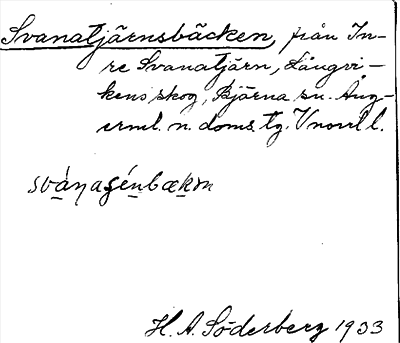 Svanatjärnsbäcken, från In-
re Svanatjärn, Långvi-
kens skog, Björna sn. Ång-
erml. n. doms. tg. Vnorrl l.
sváŋagénbækɷn
H. A. Söderberg 1933